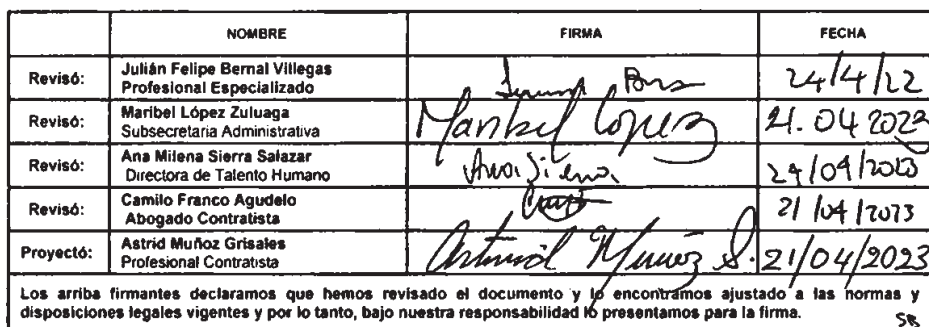 NOMBRE FIRMA FECHA
Revisó: Julián Felipe Bernal Villegas
Profesional Especializado 24/4/22
Revisó: Maribel López Zuluaga
Subsecretaria Administrativa Maribel López 21. 04 2023
Revisó: Ana Milena Sierra Salazar
Directora de Talento Humano 24/04/2023
Revisó: Camilo Franco Agudelo
Abogado Contratista 21/04/2023
Proyectó: Astrid Muñoz Grisales
Profesional Contratista Muñoz 21/04/2023
Los arriba firmantes declaramos que hemos revisado el documento y lo encontramos ajustado a las normas y
disposiciones legales vigentes y por lo tanto, bajo nuestra responsabilidad lo presentamos para la firma.
SB